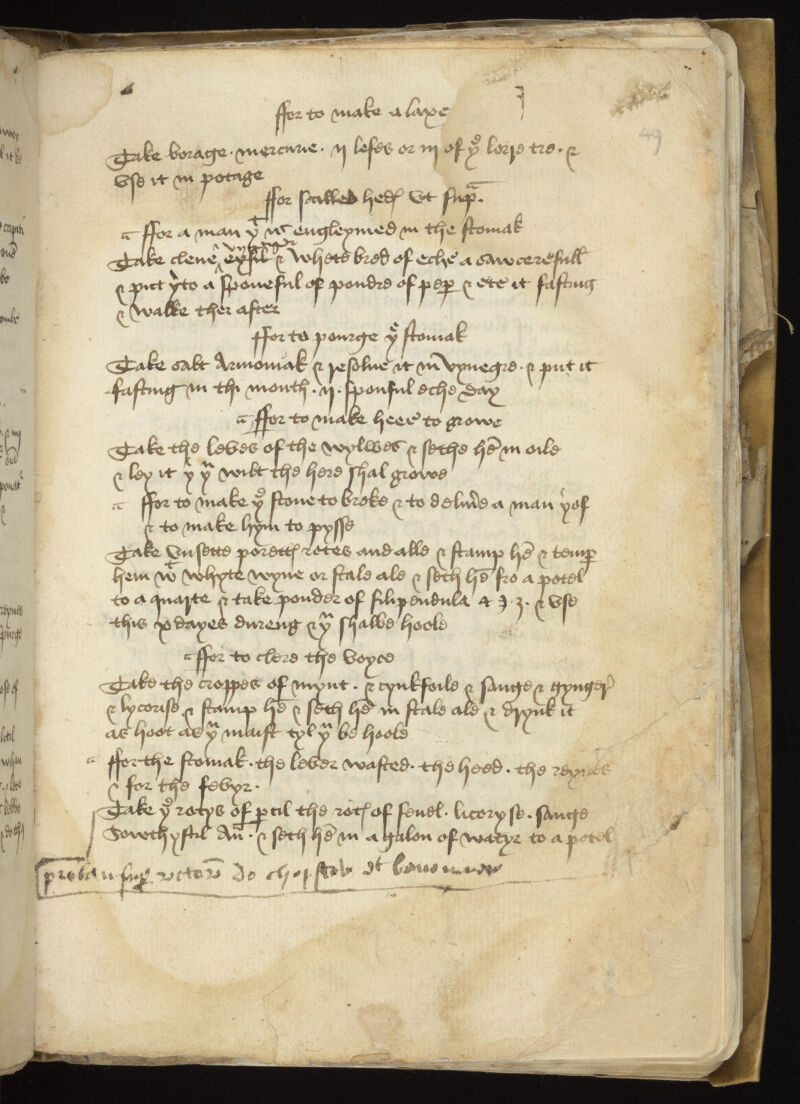 ffor to make a laxe
49
Take borage · mercurie · ij lefes or iij of yͤ lorye tre · &
vse it in potage
ffor scalled hed vt supᵃ.
ffor a man yᵗ is engleymed in the stomak
vynegre
Take clene eysil & whete bred of eche a sawcerefull
& put yʳto a sponeful of poudre of pep & ete it fasting
& walke ther after
ffor to pourge yͤ stomak
Take salt Armoniak & resolue it in vynegre · & put it
fasting in thi mouth · ij · sponful eche day
ffor to make heer to growe
Take the leves of the wylwes & sethe hē in oile
& ley it yʳ yᵘ wilt the here shal growe
ffor to make yͤ stone to breke & to delivͤe a man yʳof
& to make hym to pysse
Take vnsette porett rotes and alle & stamp hē & temp
hem wᵗ whyte wyne or stale ale & seth hē fro a potel
to a quarte & take pouder of filipendula & vse
this x dayes dureng & yᵘ shalbe hoole
ffor to clere the voyce
Take the croppes of mynt · & cynkfoile & sauge & gynger
& lycorise & stamp hē & seth hē in stale ale & drynk it
as hoot as yᵘ maist tyl yᵘ be hoole
ffor the stomak · the lever wasted · the heed · the reynes
& for the fevyr ·
Take yͤ rotys of pcil the rot of fenel · licoryse · sauge
Sowthystil Añ · & seth hē in a galon of watyr to a potel